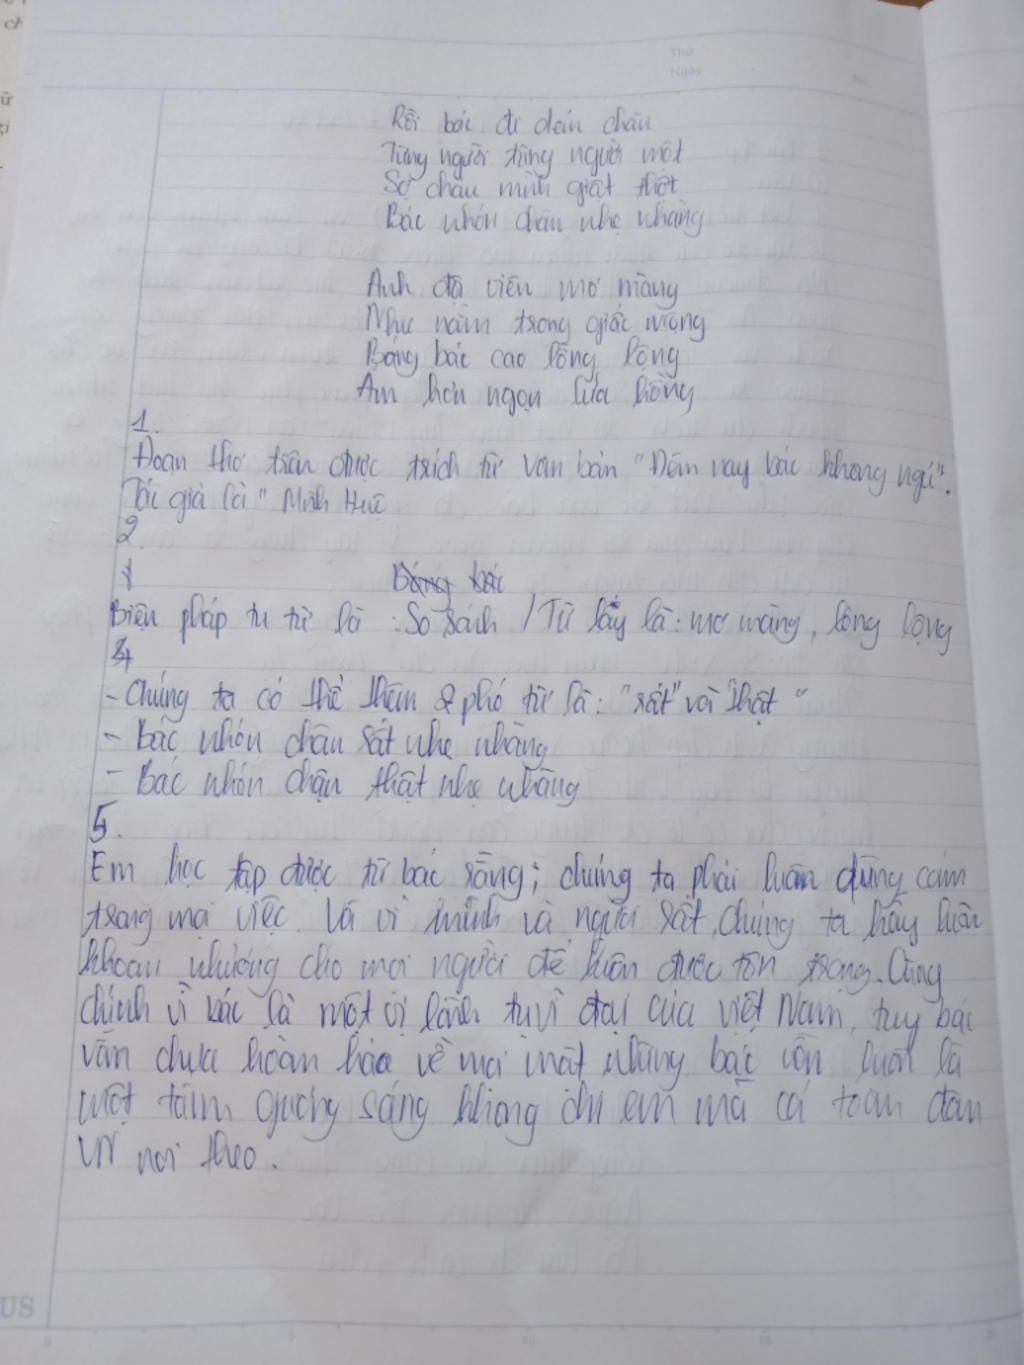 ch
ữ
gi
Thứ
Ngày
No.
Rồi bác đi dém chăn
Từng người từng người một
Sợ cháu mình giật thột
Bác nhón chân nhẹ nhàng
Anh đội viên mơ màng
Như nằm trong giấc mộng
Bóng bác cao lồng lộng
Ấm hơn ngọn lửa hồng
1.
Đoạn thơ trên được trích từ văn bản "Đêm nay bác không ngủ".
Tác giả là " Minh Huệ
2
Bóng bác
Biện pháp tu từ là : So sánh / Từ láy là : mơ màng, lồng lộng
4
- Chúng ta có thể thêm 2 phó từ là : "rất" và "thật "
- Bác nhón chân rất nhẹ nhàng
- Bác nhón chân thật nhẹ nhàng
5.
Em học tập được từ bác rằng; chúng ta phải luôn dũng cảm
trong mọi việc. Và vì mình và người rất, chúng ta hãy luôn
khoan nhường cho mọi người để luôn được tôn trọng. Cũng
chính vì bác là một vị lãnh tụ vĩ đại của việt Nam, tuy bác
vẫn chưa hoàn hảo về mọi mặt nhưng bác vẫn luôn là
một tấm gương sáng không chỉ em mà cả toàn dân
VN noi theo.
US
0 5 10 15 20